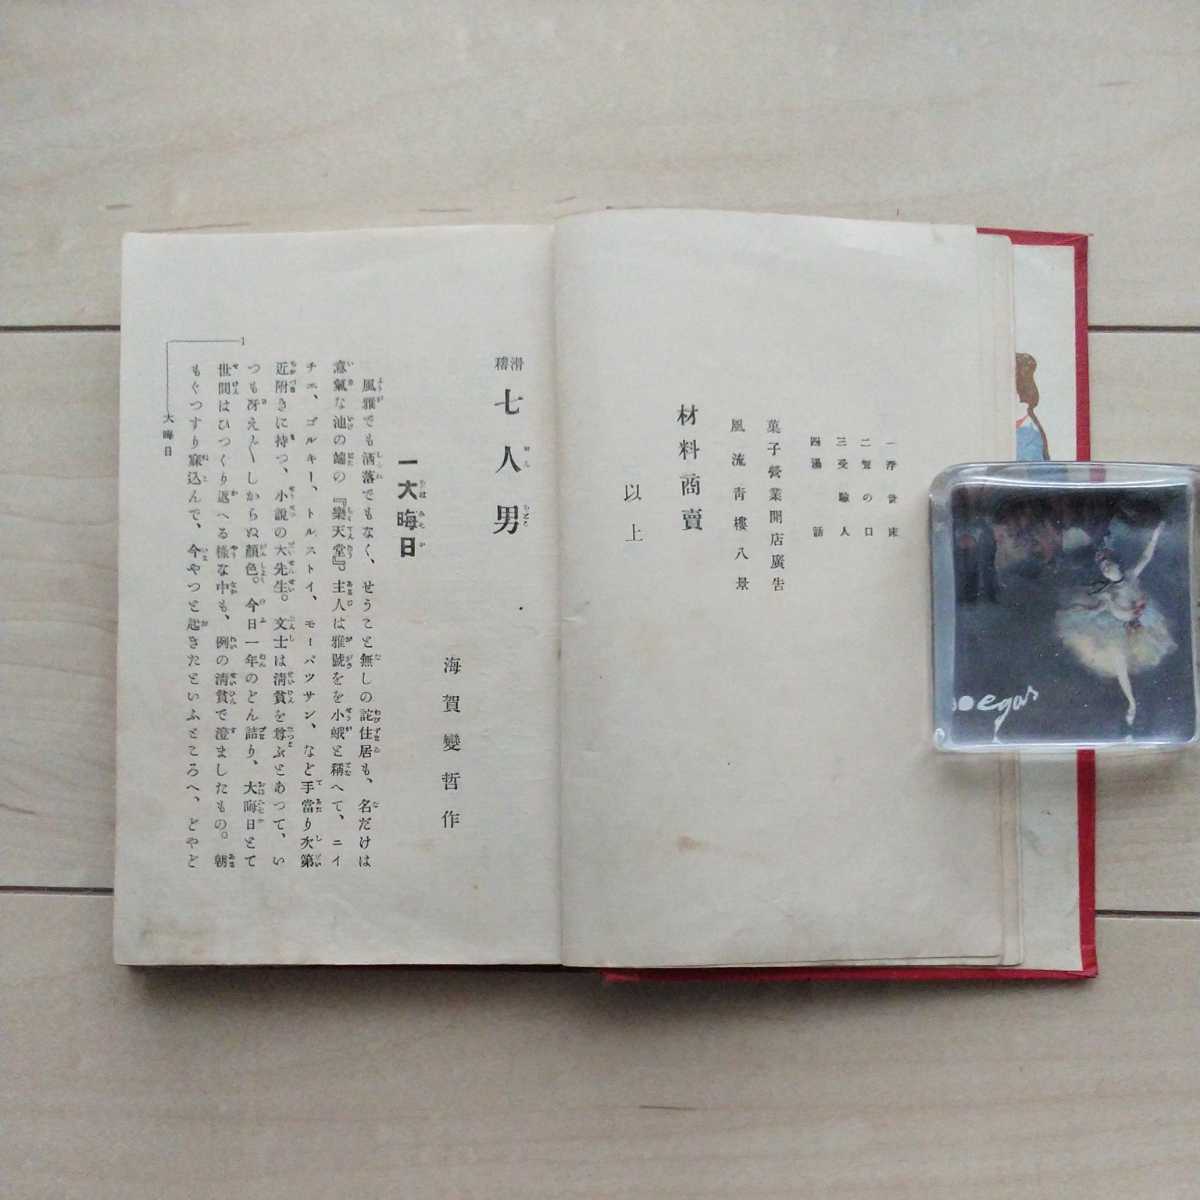 一浮世床
二蟹の口
三受驗人
四湯話
菓子營業開店廣告
風流靑樓八景
材料商賣
以上
滑稽 七人男
海賀變哲作
一大晦日
風雅でも洒落でもなく、せうこと無しの詫住居も、名だけは
意氣な池の端の『樂天堂』。主人は雅號をを小蛾と稱へて、ニイ
チエ、ゴルキー、トルストイ、モーパツサン、など手當り次第
近附きに持つ、小說の大先生。文士は淸貧を尊ぶとあつて、い
つも冴え〲しからぬ顏色。今日一年のどん詰り、大晦日とて
世間はひつくり返へる樣な中も、例の淸貧で澄ましたもの。朝
もぐつすり寐込んで、今やつと起きたといふところへ、どやど
大晦日
1
Degas